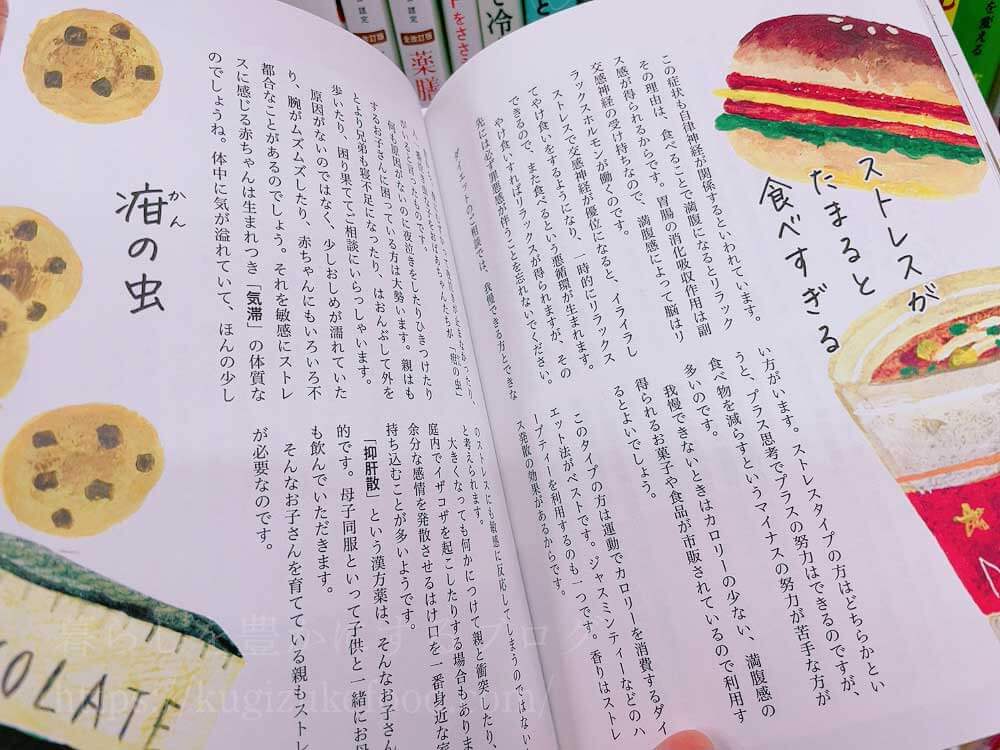 ストレスが
たまると
食べすぎる
この症状も自律神経が関係するといわれています。
その理由は、食べることで満腹になるとリラック
ス感が得られるからです。胃腸の消化吸収作用は副
交感神経の受け持ちなので、満腹感によって脳はリ
ラックスホルモンが働くのです。
ストレスで交感神経が優位になると、イライラし
てやけ食いをするようになり、一時的にリラックス
できるので、また食べるという悪循環が生まれます。
やけ食いすればリラックスが得られますが、その
先には必ず罪悪感が伴うことを忘れないでください。
ダイエットのご相談では、我慢できる方とできな
い方がいます。ストレスタイプの方はどちらかとい
うと、プラス思考でプラスの努力はできるのですが、
食べ物を減らすというマイナスの努力が苦手な方が
多いのです。
我慢できないときはカロリーの少ない、満腹感の
得られるお菓子や食品が市販されているので利用す
るとよいでしょう。
このタイプの方は運動でカロリーを消費するダイ
エット法がベストです。ジャスミンティーなどのハ
ーブティーを利用するのも一つです。香りはストレ
ス発散の効果があるからです。
疳の虫
かん
「疳の虫」
するお子さんに困っている方は大勢います。親はも
とより兄弟も寝不足になったり、はおんぶして外を
歩いたり、困り果ててご相談にいらっしゃいます。
原因がないのではなく、少しおしめが濡れていた
り、腕がムズムズしたり、赤ちゃんにもいろいろ不
都合なことがあるのでしょう。それを敏感にストレ
スに感じる赤ちゃんは生まれつき「気滞」の体質な
のでしょうね。体中に気が溢れていて、ほんの少し
のストレスにも敏感に反応してしまうのではない
と考えられます。
大きくなっても何かにつけて親と衝突したり、
庭内でイザコザを起こしたりする場合もありま
余分な感情を発散させるはけ口を一番身近な家
持ち込むことが多いようです。
「抑肝散」という漢方薬は、そんなお子さん
的です。母子同服といって子供と一緒にお母
も飲んでいただきます。
そんなお子さんを育てている親もストレ
が必要なのです。
OLATE
全改訂版
薬膳
https://kugizukefood.com/